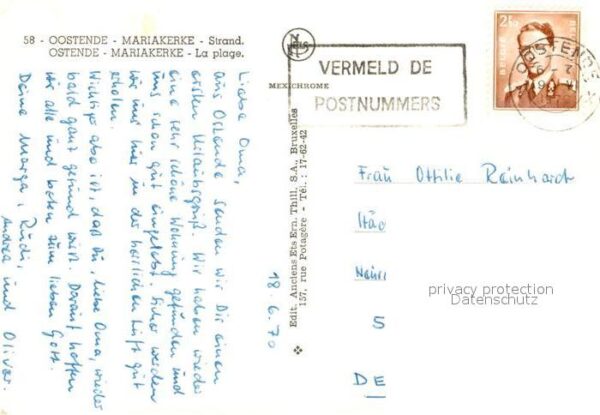 58 - OOSTENDE - MARIAKERKE - Strand.
OSTENDE - MARIAKERKE - La plage.
Liebe Oma,
aus Ostende senden wir Dir einen
ersten Urlaubsgruß. Wir haben wieder
eine sehr schöne Wohnung gefunden und
uns schon gut eingelebt. Sicher werden
wir uns hier in der herrlichen Luft gut
erholen.
Wichtig aber ist, daß Du, liebe Oma, wieder
bald ganz gesund wirst. Darauf hoffen
wir alle und beten zum lieben Gott.
Deine Marga, Rudi,
Andrea und Oliver.
18.6.70
MEXICHROME
Edit. Anciens Ets Ern. Thill, S.A., Bruxelles
157, rue Potagère - Tél. : 17-62-42
VERMELD DE
POSTNUMMERS
OOSTENDE
BELGIE
Frau Ottilie Reinhardt
5
DE
privacy protection
Datenschutz